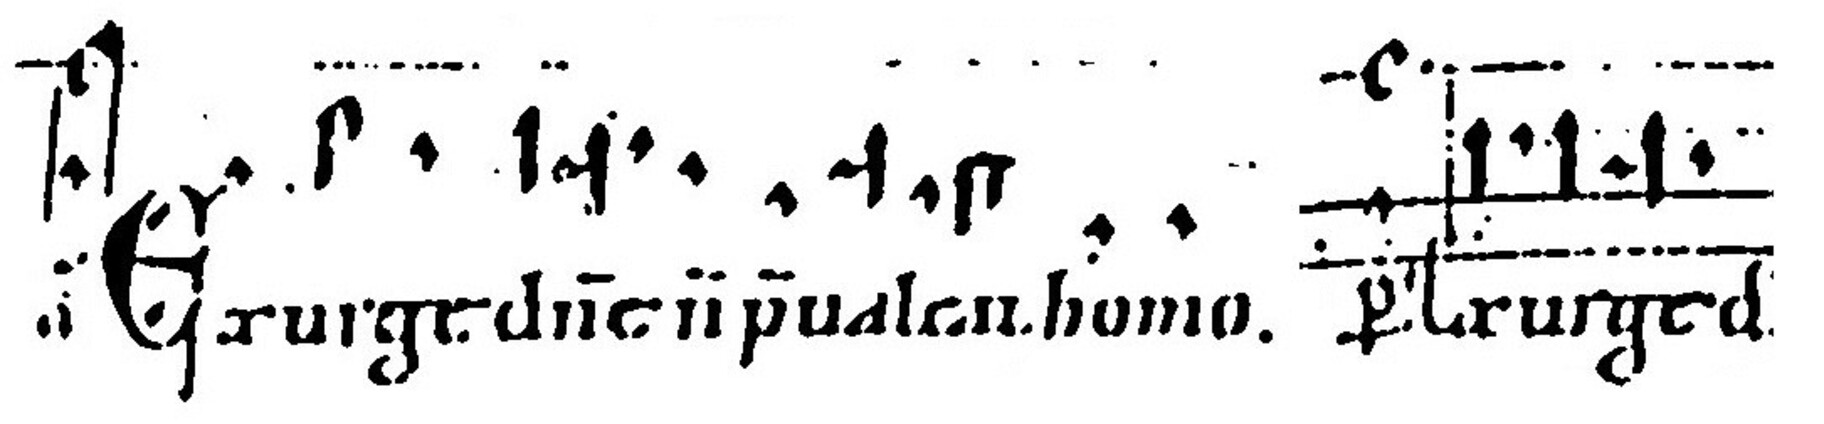 a Exurge dn̄e n̈ p̄ualeat homo. ps Exurge d